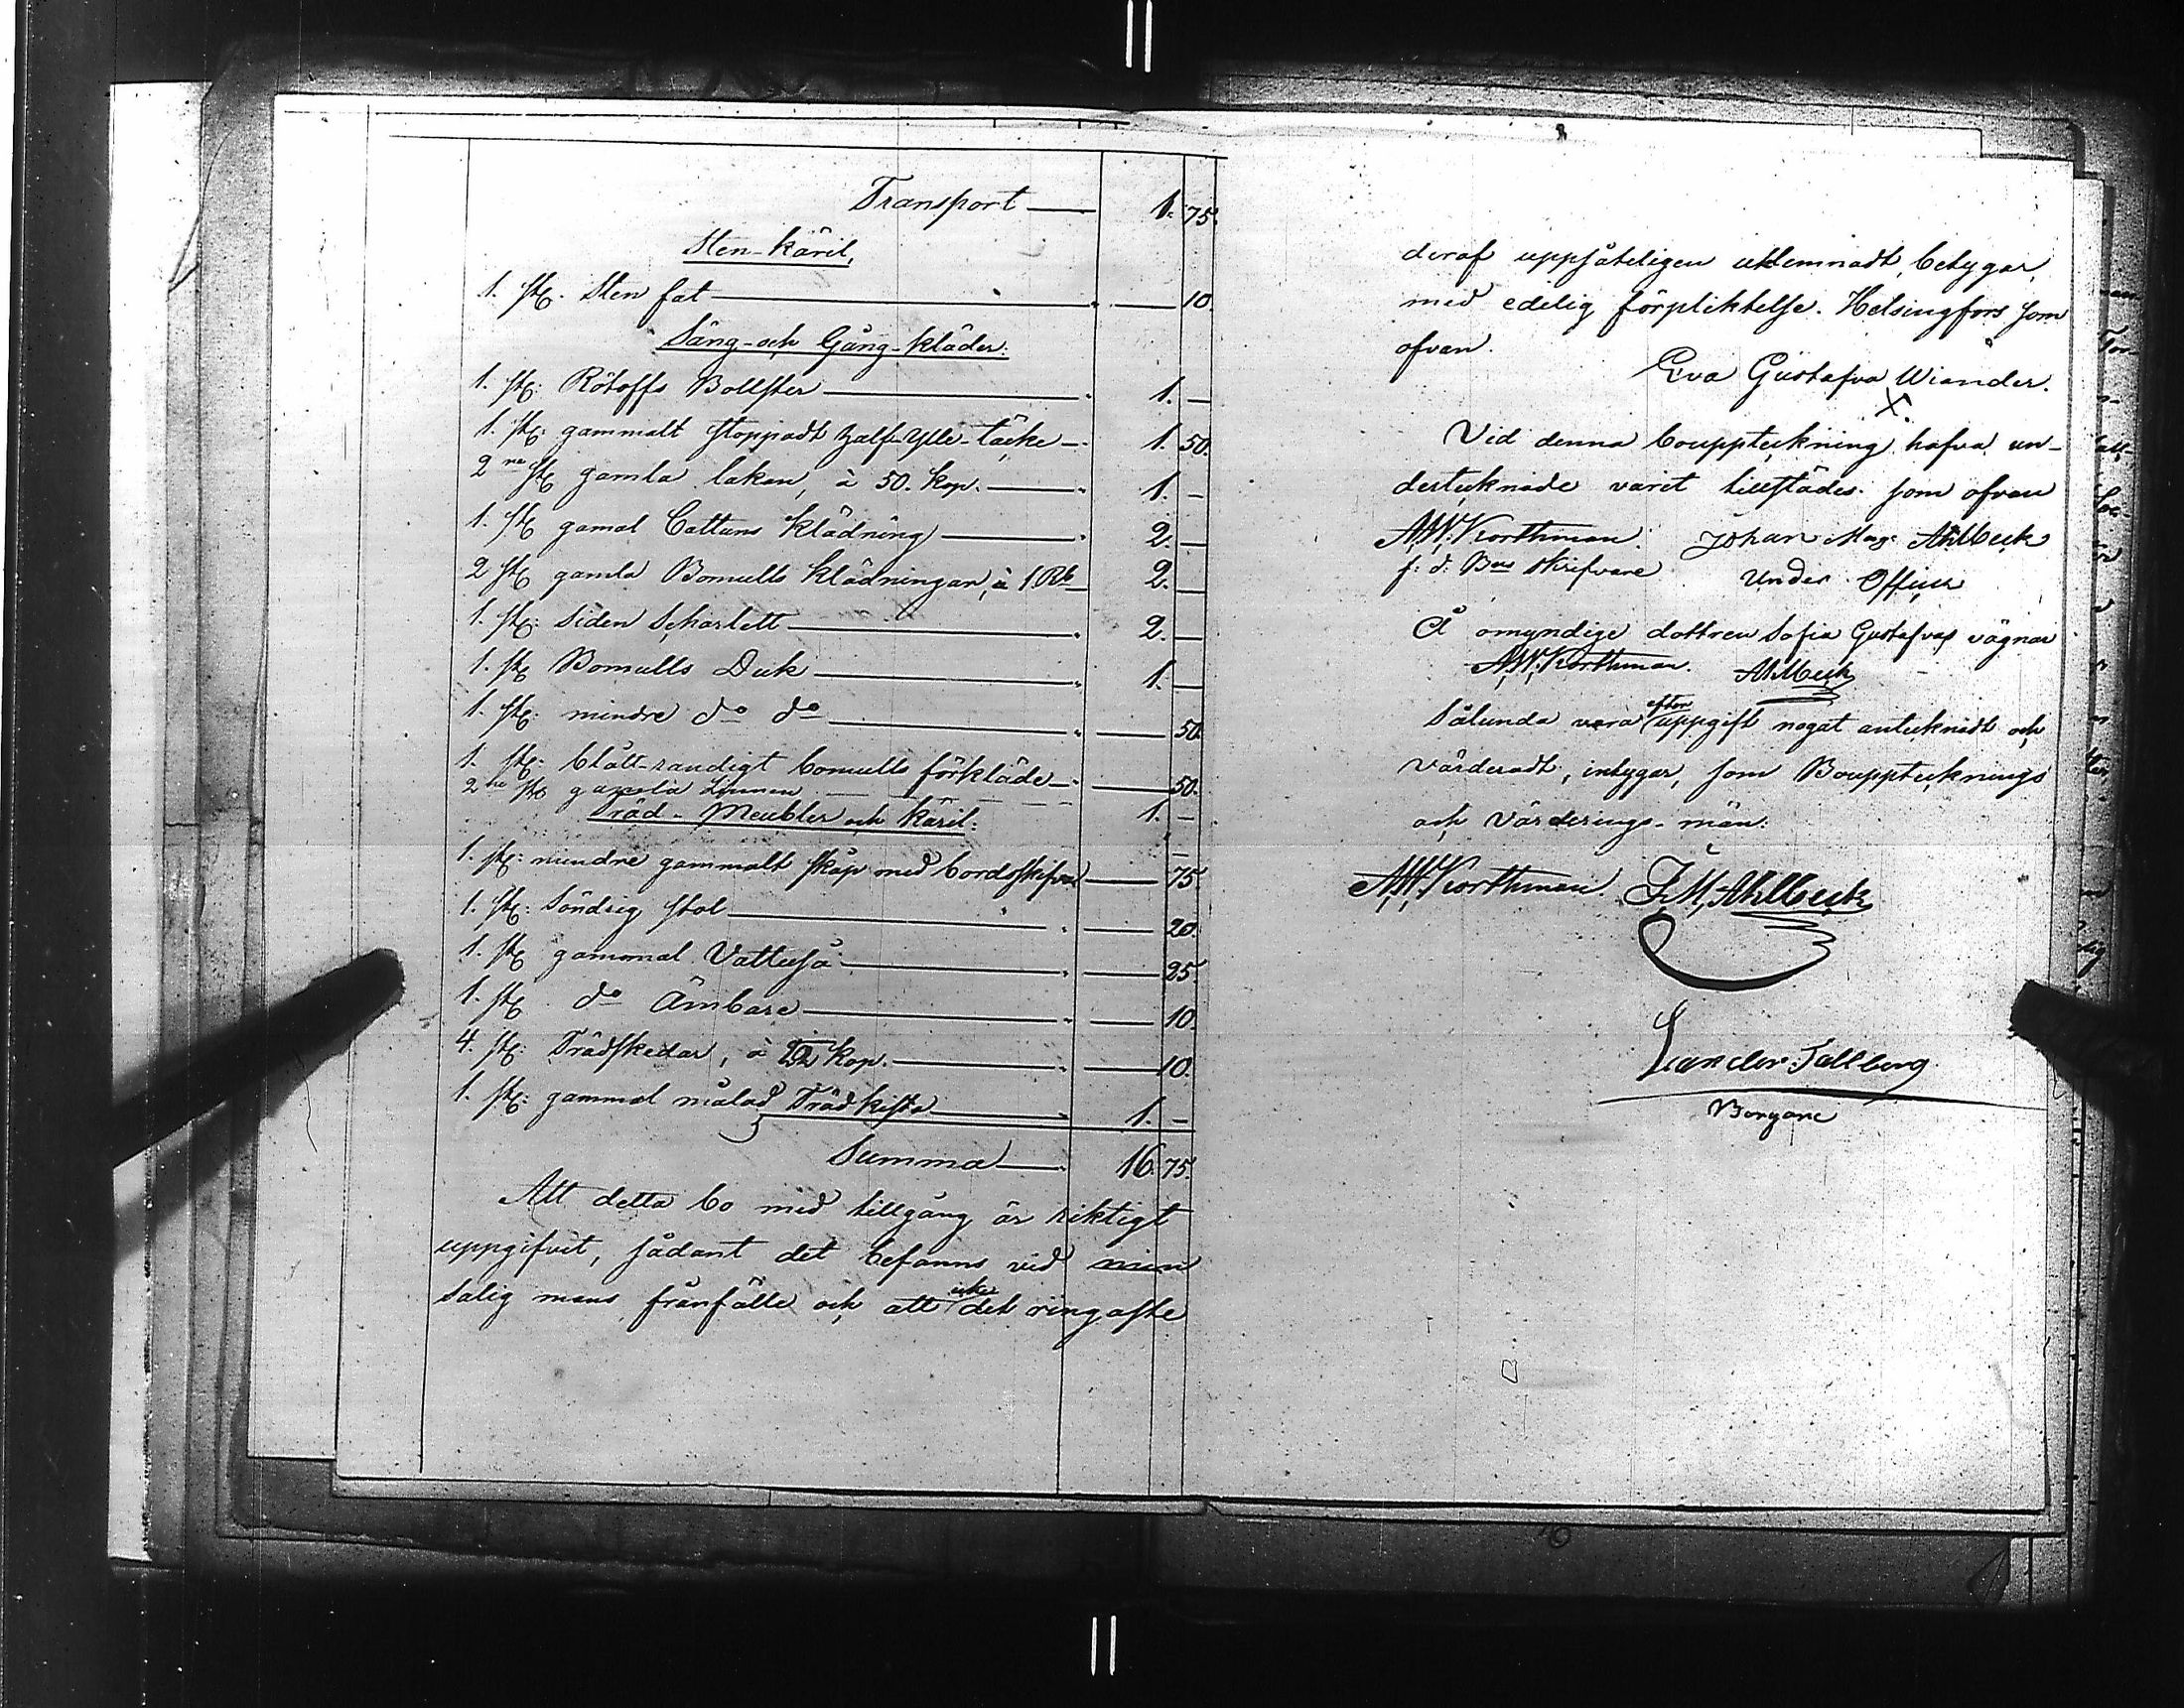 Transport — 1. 75.
Sten-käril,
1. st. Sten fat — 10.
Säng- och Gång-kläder:
1. st: Bollster — 1. —
1. st: gammalt stoppadt half-Ylle-täcke — 1. 50.
2ne st gamla lakan, à 50. kop. — 1. —
1. st gamal Cattuns Klädning — 2. —
2 st gamla Bomulls klädningar, à 1. Rb — 2. —
1. st: Siden Scharlett — 2. —
1. st Bomulls Duk — 1. —
1. st: mindre do do — 50.
1. st: blått-randigt bomulls förkläde — 50.
2ne st gamla Linnen — 1. —
Träd-Meubler och Käril:
1. st: mindre gammalt skåp med bordsskifva — 75.
1. st: Söndrig stol — 20.
1. st gammal Vattuså — 25.
1. st do Ämbare — 10.
4. st: Trädskedar, à kop. — 10.
1. st: gammal målad Trädkista — 1. —
Summa — 16. 75.
Att detta bo med tillgång är riktigt
uppgifvit, sådant det befanns vid min
salig mans frånfälle och att icke det ringaste
deraf uppsåteligen utlemnadt, betygar,
med edelig förpliktelse. Helsingfors som
ofvan.
Eva Gustafva Wiander.
X
Vid denna bouppteckning hafva un-
dertecknade varit tillstädes. som ofvan
A.W. Korthman. Johan Mag. Ahlbeck
f: d: Bus skrifvare Under Officer
Å omyndige dottren Sofia Gustafvas vägnar
A.W. Korthman. Ahlbeck
Sålunda vara efter uppgift nogat antecknadt och
värderadt, intygar, som Boupptecknings
och Värderings-män:
A.W. Korthman. J.M. Ahlbeck
Tallberg
Borgare